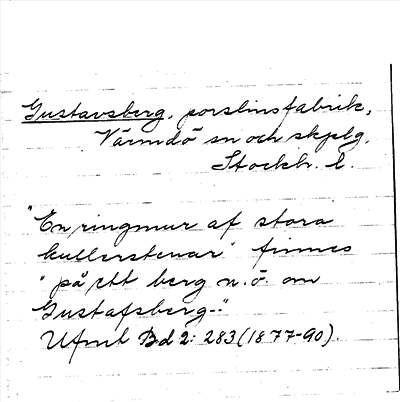 Gustavsberg, porslinsfabrik,
Värmdö sn och skplg,
Stockh. l.
"En ringmur af stora
kullerstenar" finnes
"på ett berg n.ö. om
Gustafsberg."
Ufmt Bd 2: 283 (1877-90).